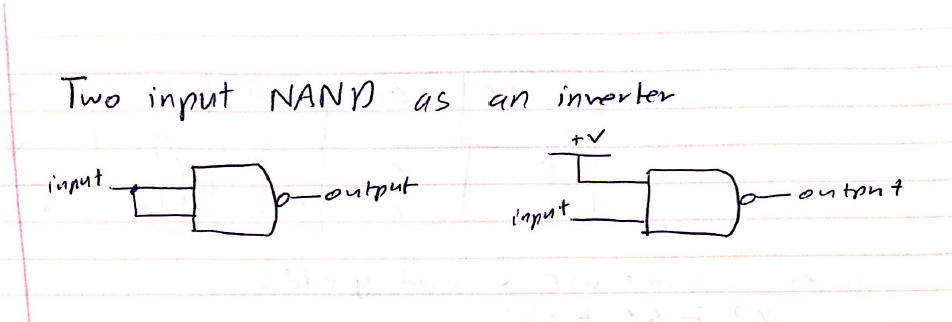 Two input NAND as an inverter
+V
input output
input output